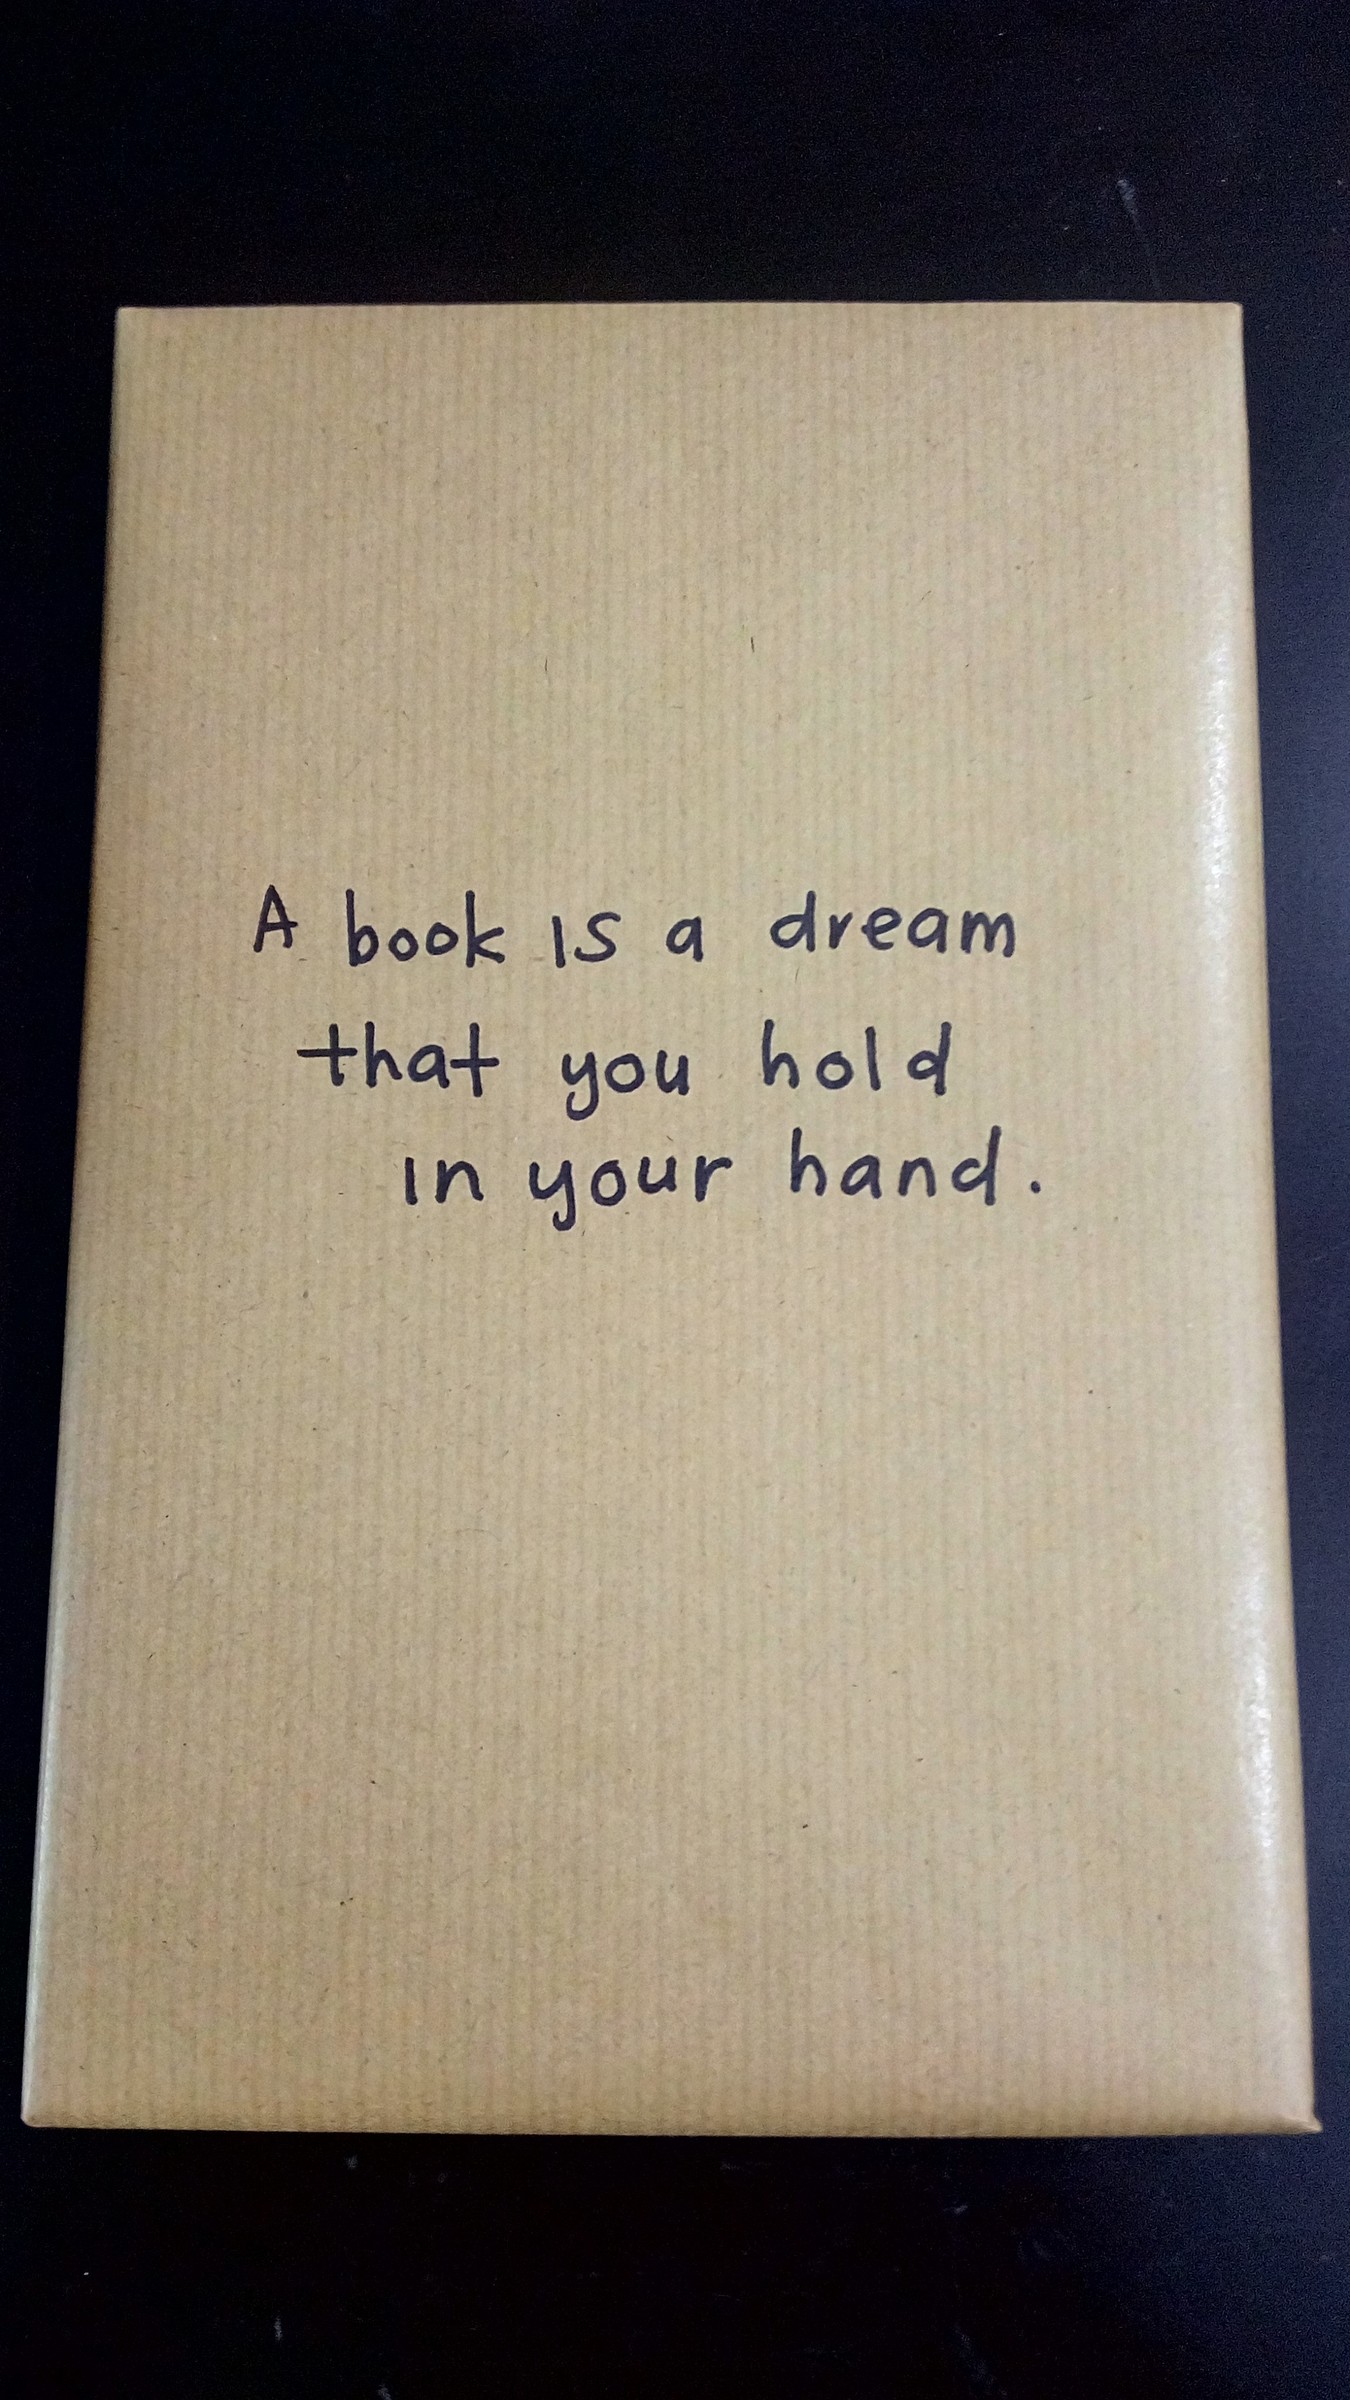 A book is a dream
that you hold
in your hand.